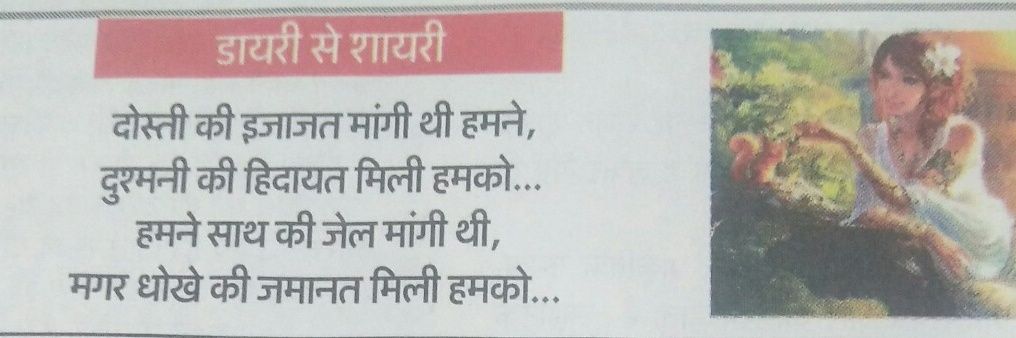 डायरी से शायरी
दोस्ती की इजाजत मांगी थी हमने,
दुश्मनी की हिदायत मिली हमको...
हमने साथ की जेल मांगी थी,
मगर धोखे की जमानत मिली हमको...